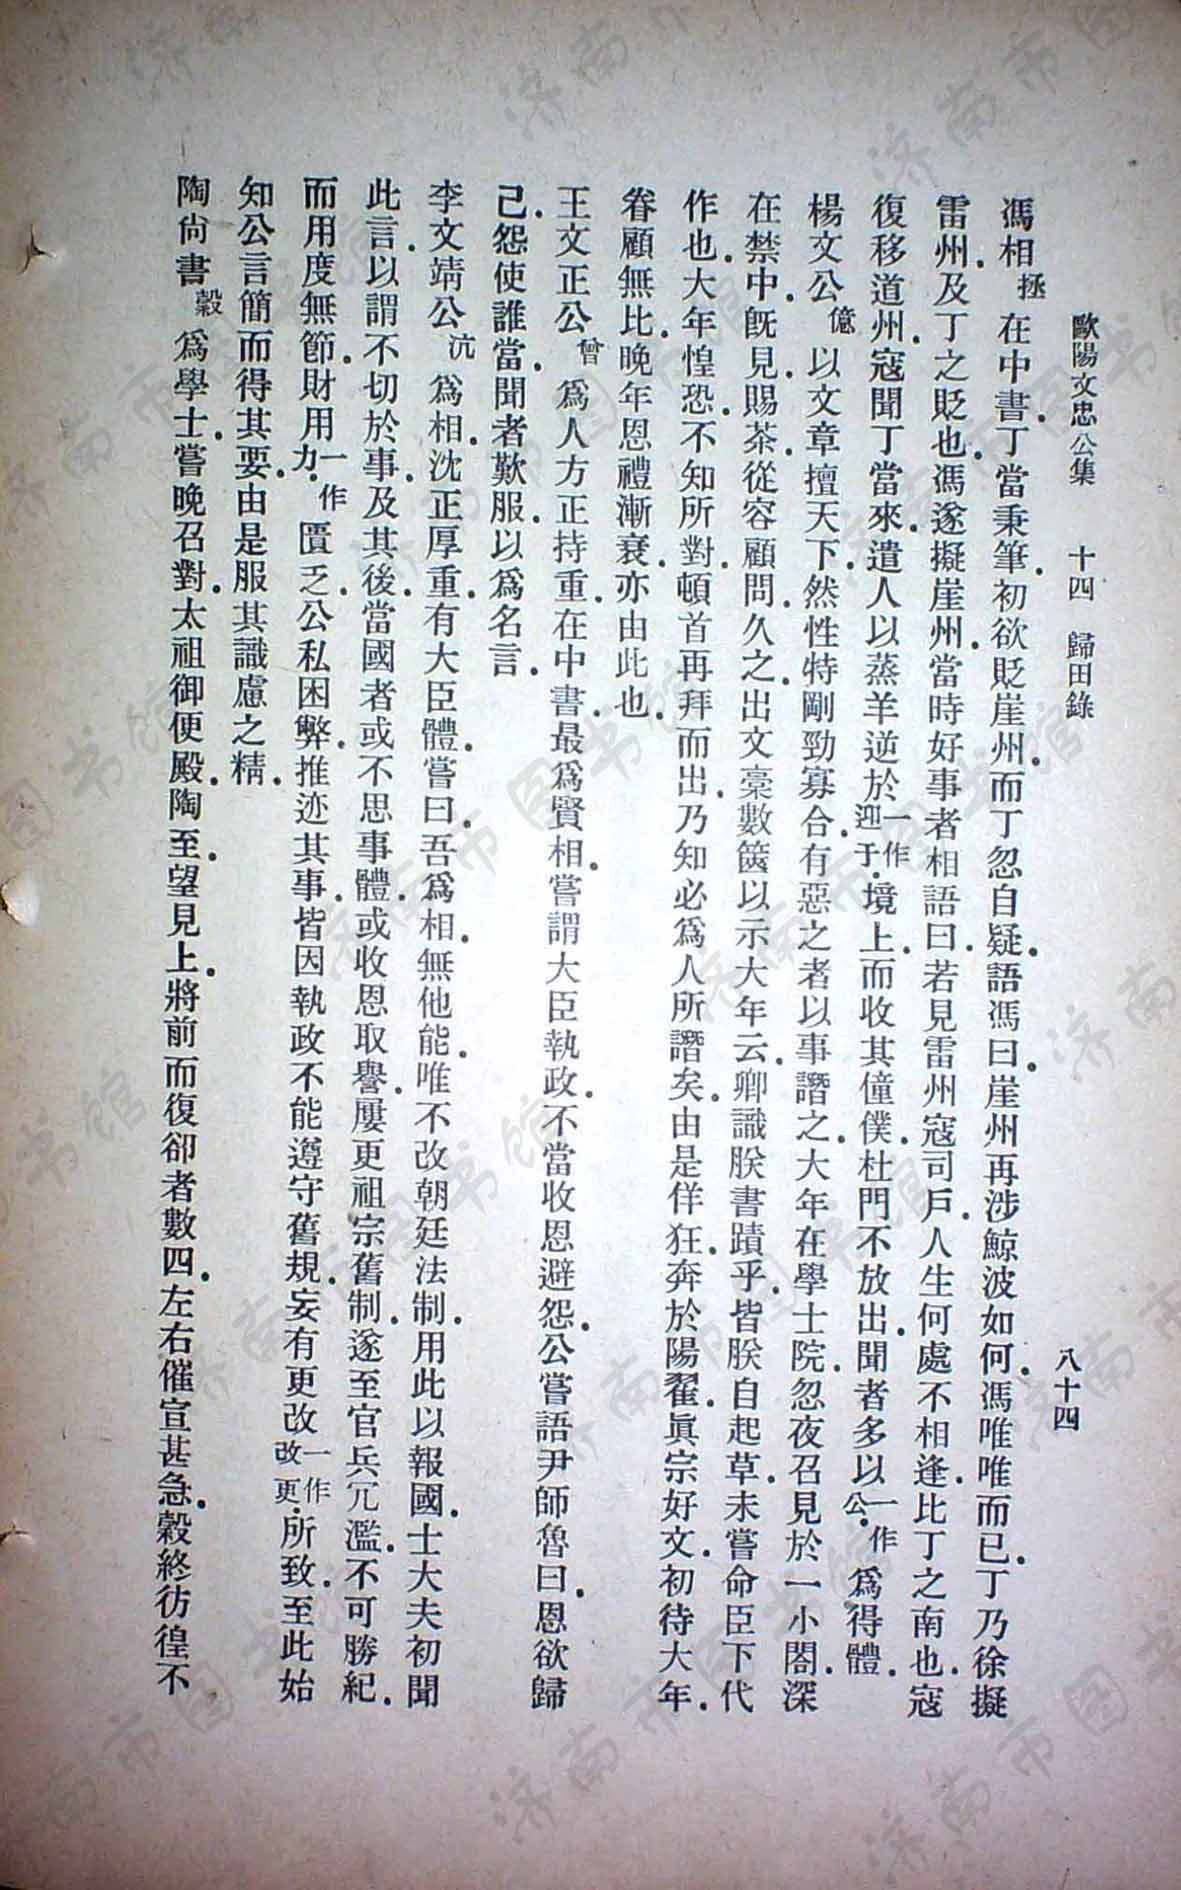 歐陽文忠公集 十四 歸田錄 八十四
馮相拯在中書.丁當秉筆.初欲貶崖州.而丁忽自疑.語馮曰.崖州再涉鯨波如何.馮唯唯而已.丁乃徐擬
雷州.及丁之貶也.馮遂擬崖州.當時好事者相語曰.若見雷州寇司戶.人生何處不相逢.比丁之南也.寇
復移道州.寇聞丁當來.遣人以蒸羊逆於一作迎于.境上.而收其僮僕.杜門不放出.聞者多以一作公.爲得體.
楊文公億以文章擅天下.然性特剛勁寡合.有惡之者以事譖之.大年在學士院.忽夜召見於一小閤.深
在禁中.旣見.賜茶.從容顧問.久之.出文稾數篋以示大年云.卿識朕書蹟乎.皆朕自起草.未嘗命臣下代
作也.大年惶恐.不知所對.頓首再拜而出.乃知必爲人所譖矣.由是佯狂.奔於陽翟.眞宗好文.初待大年.
眷顧無比.晚年恩禮漸衰.亦由此也.
王文正公曾爲人方正持重.在中書.最爲賢相.嘗謂大臣執政.不當收恩避怨.公嘗語尹師魯曰.恩欲歸
己.怨使誰當.聞者歎服.以爲名言.
李文靖公沆爲相.沈正厚重.有大臣體.嘗曰.吾爲相.無他能.唯不改朝廷法制.用此以報國.士大夫初聞
此言.以謂不切於事.及其後.當國者或不思事體.或收恩取譽.屢更祖宗舊制.遂至官兵冗濫.不可勝紀.
而用度無節.財用一作力.匱乏.公私困弊.推迹其事.皆因執政不能遵守舊規.妄有更改一作改更.所致.至此始
知公言簡而得其要.由是服其識慮之精.
陶尙書穀爲學士.嘗晚召對.太祖御便殿.陶至.望見上.將前而復卻者數四.左右催宣甚急.穀終彷徨不
济南市图书馆